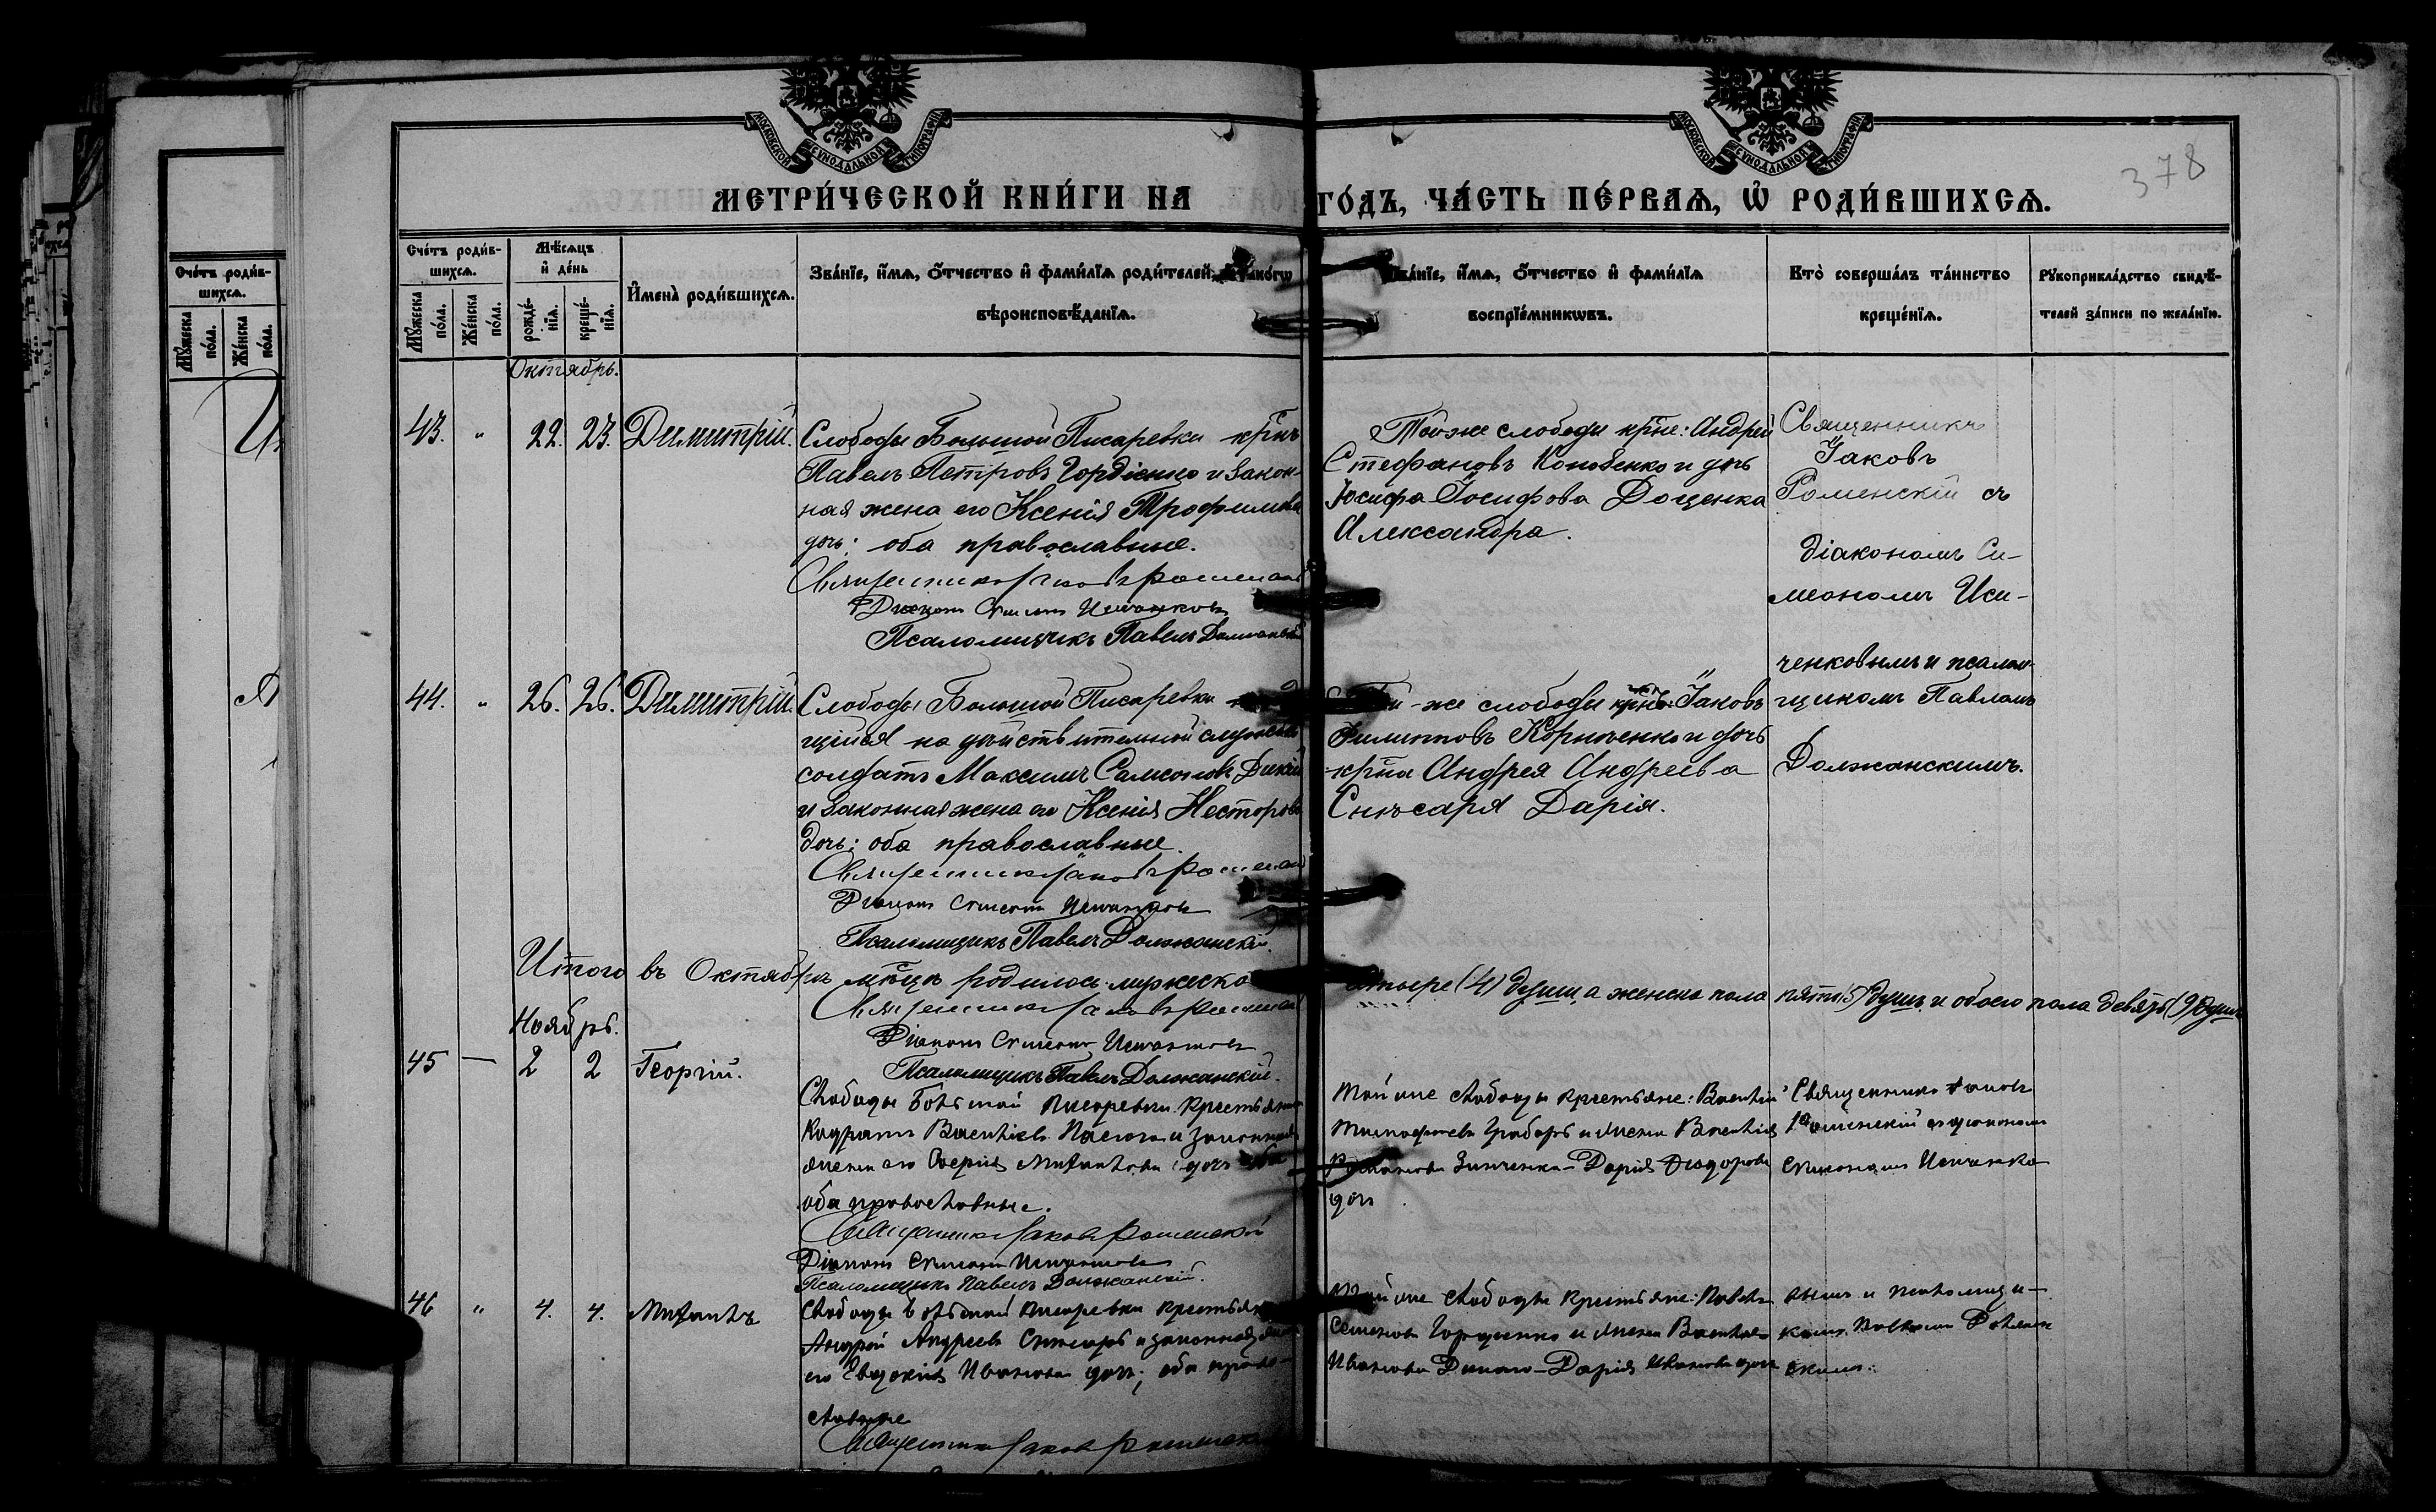 МОСКОВСКОЙ СѴНОДАЛЬНОЙ ТИПОГРАФІИ
МОСКОВСКОЙ СѴНОДАЛЬНОЙ ТИПОГРАФІИ
378
МЕТРИ́ЧЕСКОЙ КНИ́ГИ НА ГО́ДЪ, ЧА́СТЬ ПЕ́РВАѦ, Ѡ҆ РОДИ́ВШИХСѦ.
Сче́тъ роди́в-
шихсѧ.
Мꙋ́жеска по́ла.
Же́нска по́ла.
Сче́тъ роди́в-
шихсѧ.
Мꙋ́жеска по́ла.
Же́нска по́ла.
Мѣ́сѧцъ
и҆ де́нь
рожде́-
нїѧ.
креще́-
нїѧ.
И҆мена̀ роди́вшихсѧ.
Зва́нїе, и҆́мѧ, ѻ҆́тчество и҆ фами́лїѧ роди́телей, и҆ како́гѡ
вѣроисповѣ́данїѧ.
Зва́нїе, и҆́мѧ, ѻ҆́тчество и҆ фами́лїѧ
воспрїе́мникѡвъ.
Кто̀ соверша́лъ та́инство
креще́нїѧ.
Рꙋкоприкла́дство свидѣ́-
телей за́писи по жела́нїю.
Октябрь.
43. " 22. 23. Димитрій.
Слободы Большой Писаревки кр̃нъ
Павелъ Петровъ Гордіенко и закон-
ная жена его Ксенія Трофимова
дочь; оба православные.
Священникъ Іаковъ Роменскій
Діаконъ Симеонъ Исиченковъ
Псаломщикъ Павелъ Должанскій
Той же слободы кр̃не: Андрей
Стефановъ Коновенко и дочь
Іосифа Іосифова Доценка
Александра.
Священникъ
Іаковъ
Роменскій съ
діакономъ Си-
меономъ Иси-
ченковымъ и псалом-
щикомъ Павломъ
Должанскимъ.
44. " 26. 26. Димитрій.
Слободы Большой Писаревки
щійся на дѣйствительной службѣ
солдатъ Максимъ Самсоновъ Дикій
и законная жена его Ксенія Несторова
дочь; оба православные.
Священникъ Іаковъ Роменскій
Діаконъ Симеонъ Исиченковъ
Псаломщикъ Павелъ Должанскій.
Той-же слободы кр̃нъ: Іаковъ
Филипповъ Корниенко и дочь
кр̃на Андрея Андреева
Снѣсаря Дарія.
Итого въ Октябрѣ мѣсяцѣ родилось мужеска четыре (4) души, а женска пола пять (5) душъ, и обоего пола девять (9) душъ
Священникъ Іаковъ Роменскій
Діаконъ Симеонъ Исиченковъ
Псаломщикъ Павелъ Должанскій.
Ноябрь.
45 — 2 2 Георгій.
Слободы Большой Писаревки крестьянинъ
Кодратъ Василіевъ и законная
жена его Михаилова дочь
оба православные.
Священникъ Іаковъ Роменскій
Діаконъ Симеонъ Исиченковъ
Псаломщикъ Павелъ Должанскій.
Той же слободы крестьяне: Василій
Тимофеевъ Грабарь и жена Василія
Романова Зинченка - Дарія Феодорова
дочь
Священникъ Іаковъ
Роменскій съ діакономъ
Симеономъ Исиченко-
46 " 4. 4. Михаилъ
Слободы Большой Писаревки крестьянинъ
Андрей Андреевъ Снѣсарь и законная жена
его Евдокія Иванова дочь; оба право-
славные
Священникъ Іаковъ Роменскій
Той же слободы крестьяне: Павелъ
Семеновъ Гордиенко и жена Василія
Иванова Дикого - Дарія Иванова дочь
вымъ и псаломщи-
комъ Павломъ Должан-
скимъ.